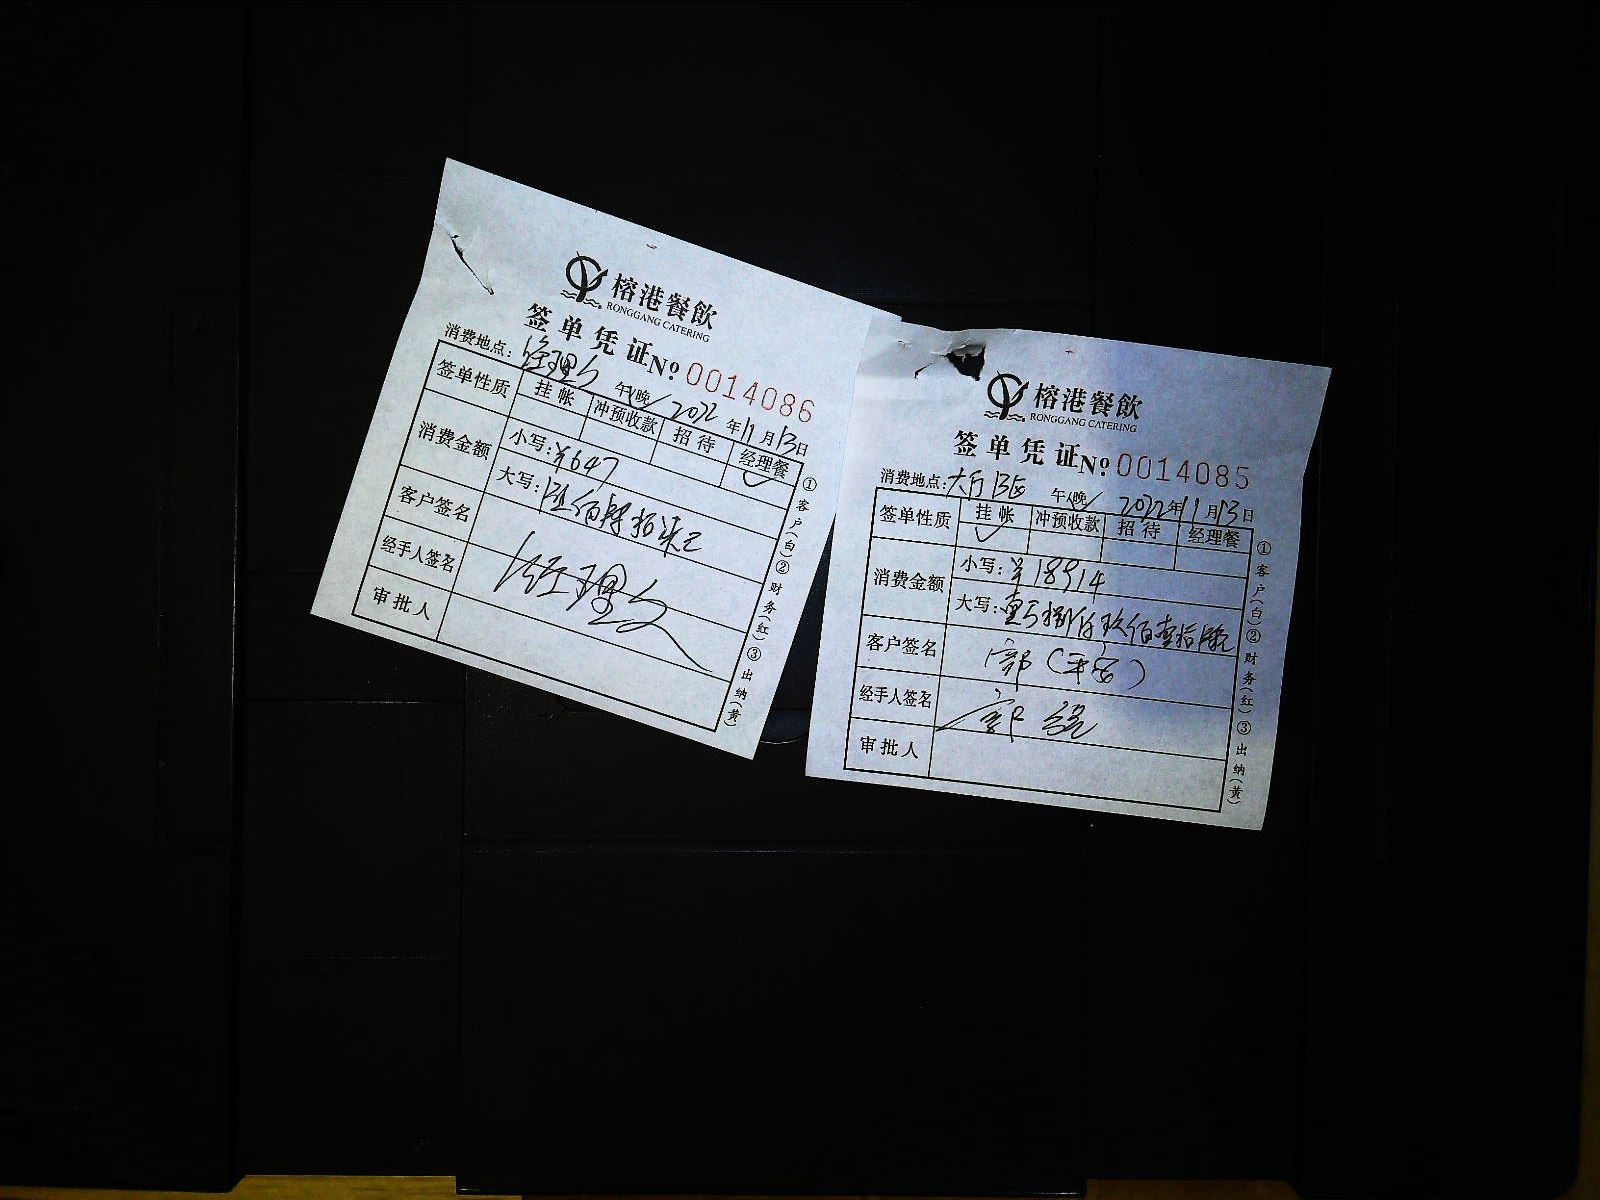 榕港餐飲
RONGGANG CATERING
签单凭证 No 0014086
消费地点: 经理 午 晚 2022年11月13日
签单性质 挂帐 冲预收款 招待 经理餐
消费金额 小写: ¥647
大写: 佰肆拾柒元
客户签名
经手人签名 经理
审批人
①客户(白)②财务(红)③出纳(黄)
榕港餐飲
RONGGANG CATERING
签单凭证 No 0014085
消费地点: 大厅B区 午 晚 2022年11月13日
签单性质 挂帐 冲预收款 招待 经理餐
消费金额 小写: ¥18914
大写: 壹万捌仟玖佰壹拾肆元
客户签名 郭(平安)
经手人签名 郭
审批人
①客户(白)②财务(红)③出纳(黄)